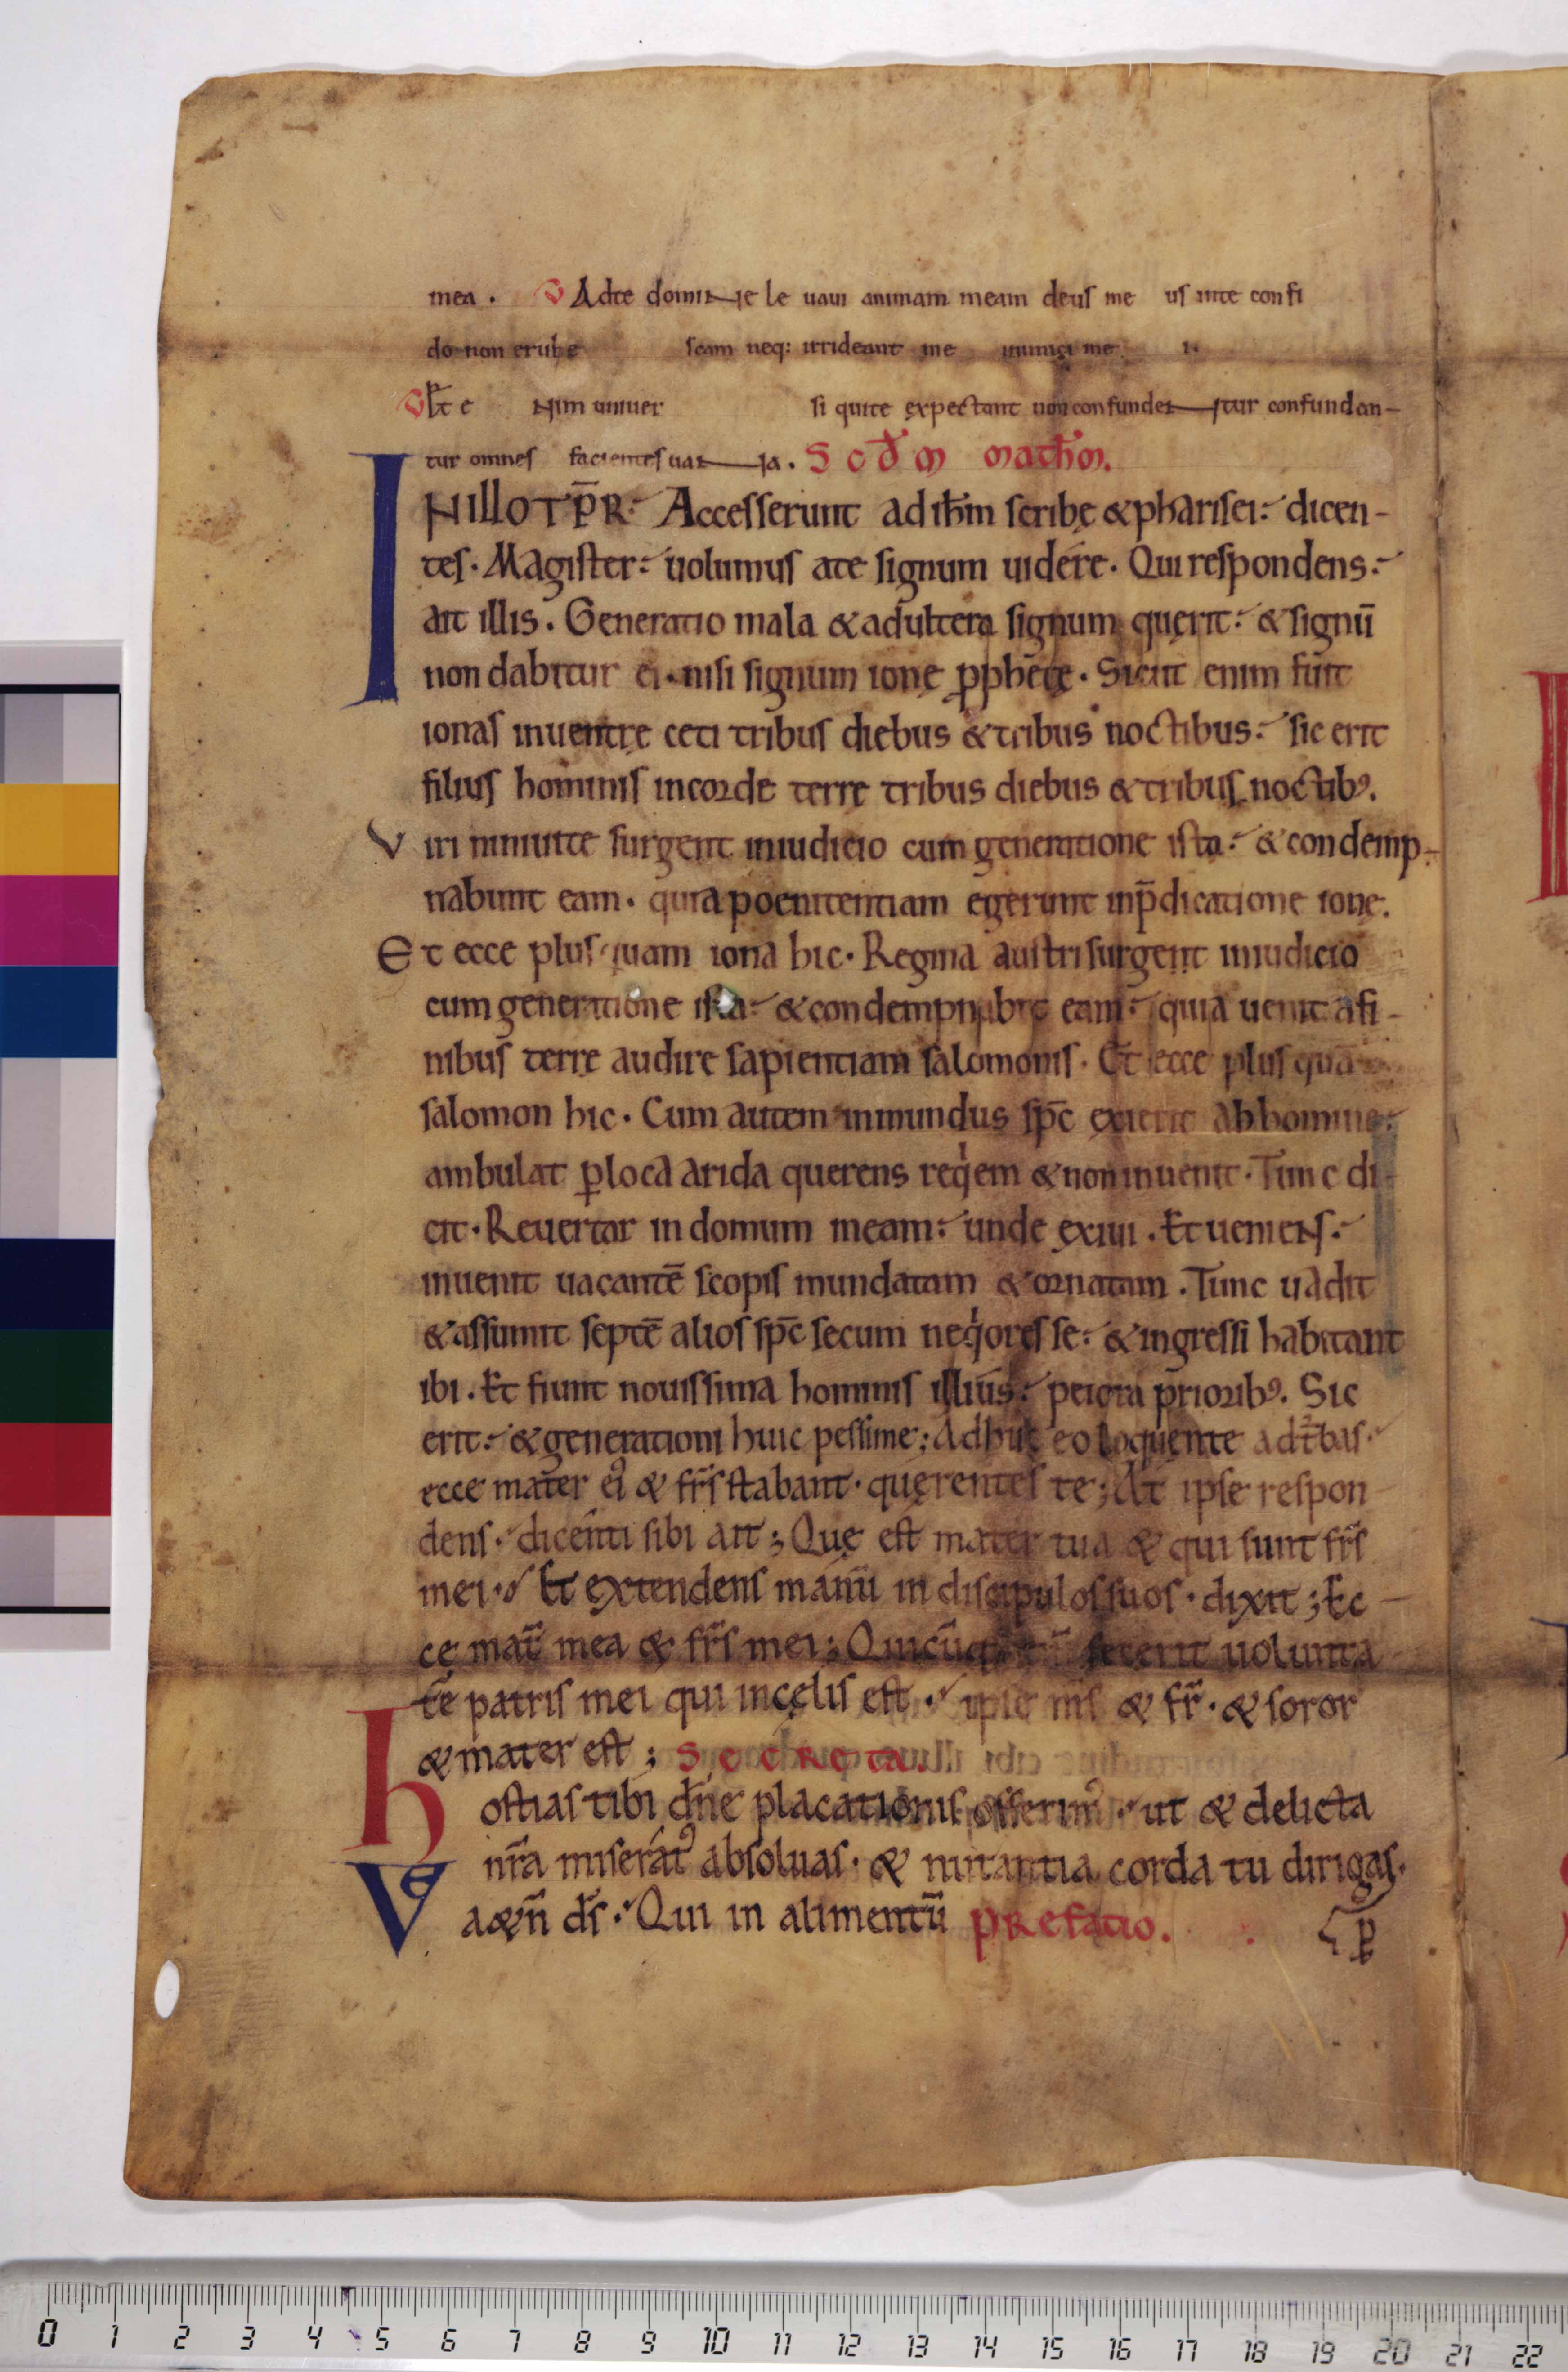 mea. V Adte domine le uaui animam meam deus me us inte confi
do non erube scam neq: irrideant me inimici me i.
V Et e nim uniuer si quite expectant non confundentur confundan-
tur omnes facientes uana. Scdm mathm.
INILLO TP̄R. Accesserunt ad ihm̄ scribę & pharisei: dicen-
tes. Magister: uolumus ate signum uidére. Qui respondens:
ait illis. Generatio mala & adultera signum querit: & signū
non dabitur ei. nisi signum ionę ꝓphētę. Sicut enim fuit
ionas inuentre ceti tribus diebus & tribus noctibus: sic erit
filius hominis incorde terrę tribus diebus & tribus noctibꝰ.
Viri niniuite surgent iniudicio cum generatione ista: & condemp-
nabunt eam. quia poenitentiam egerunt inp̄dicatione ionę.
Et ecce plus quam iona hic. Regina austri surgent iniudicio
cum generatione ista: & condempnabit eam: quia uenit afi-
nibus terrę audire sapientiam salomonis. Et ecce plus quā
salomon hic. Cum autem inmundus sp̄c exierit abhomine:
ambulat ꝑ loca arida querens reqͥem & non inuenit. Tunc di-
cit. Reuertar in domum meam: unde exiui. Et ueniens:
inuenit uacantē scopis mundatam & ornatam. Tunc uadit
& assumit septē alios sp̄c secum neqͥores se: & ingressi habitant
ibi. Et fiunt nouissima hominis illius: peiora prioribꝰ. Sic
erit: & generationi huic pessime; Adhuc eo loquente ad t̄bas.
ecce mater eiꝰ & frs̄ stabant. quęrentes te; At ipse respon
dens. dicenti sibi ait; Quę est mater tua & qui sunt frs̄
mei. Et extendens manū in discipulos suos. dixit; Ec-
ce mat̄ mea & frs̄ mei; Quicūq; fecerit uolunta
tē patris mei qui incęlis est. ipse ms̄ & fr̄. & soror
& mater est; Secreta.
Hostias tibi dn̄e placationis offerimꝰ. ut & delicta
nr̄a miseratꝰ absoluas. & nutantia corda tu dirigas. ꝑ
Ve a&n̄ ds̄. Qui in alimentū prefatio.
0 1 2 3 4 5 6 7 8 9 10 11 12 13 14 15 16 17 18 19 20 21 22